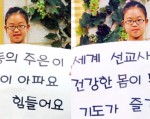 등의 주은이
이 아파요
힘들어요
세계 선교사
건강한 몸이
기도가 즐